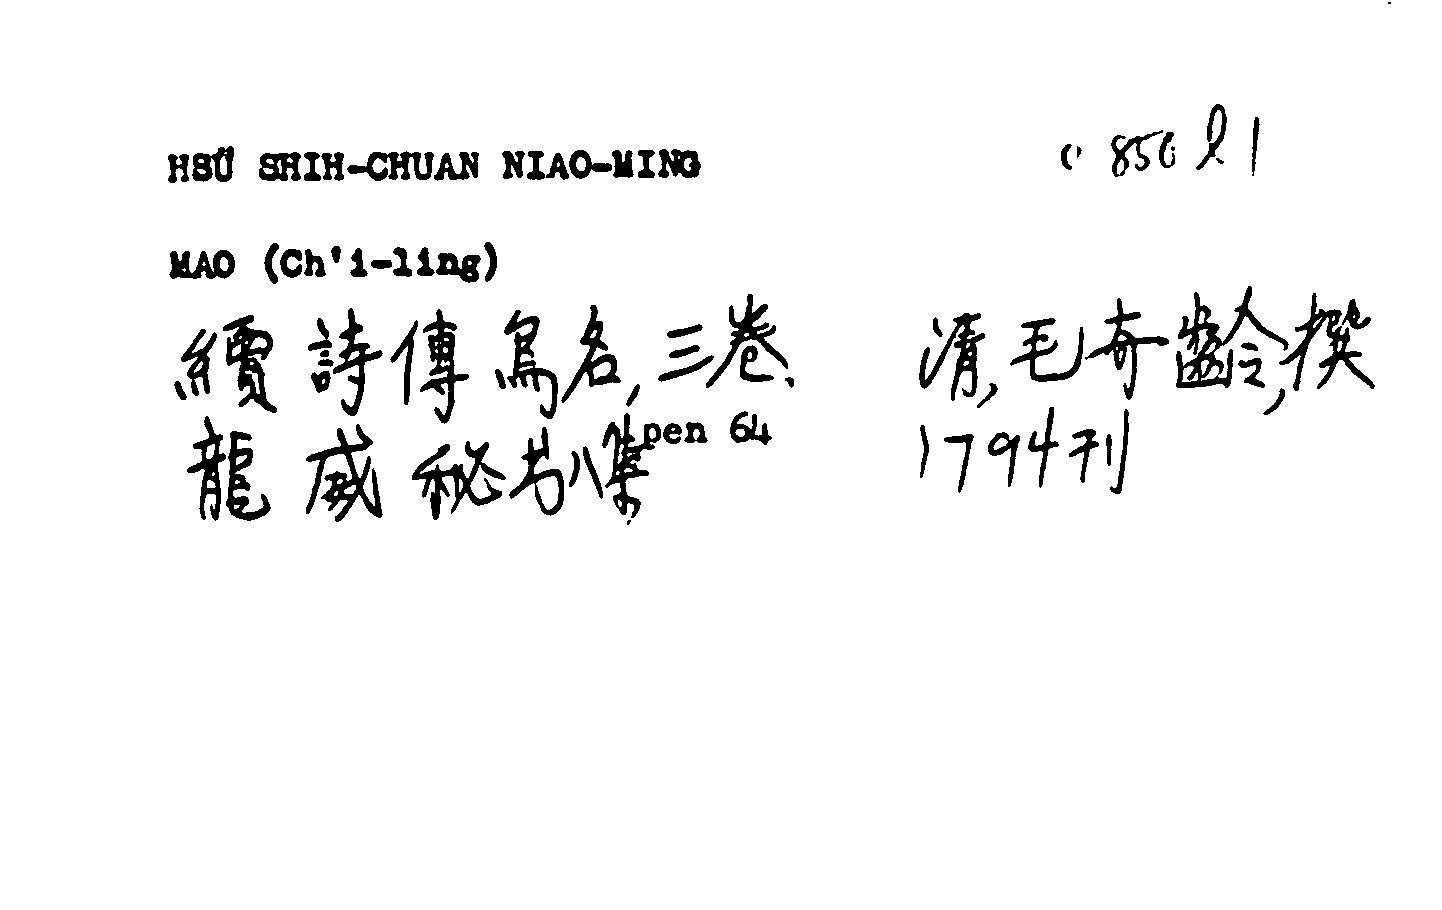 HSÜ SHIH-CHUAN NIAO-MING
C 850 l 1
MAO (Ch'i-ling)
續詩傳鳥名, 三卷. 清, 毛奇齡, 撰
龍威秘书八集 pen 64 1794刊